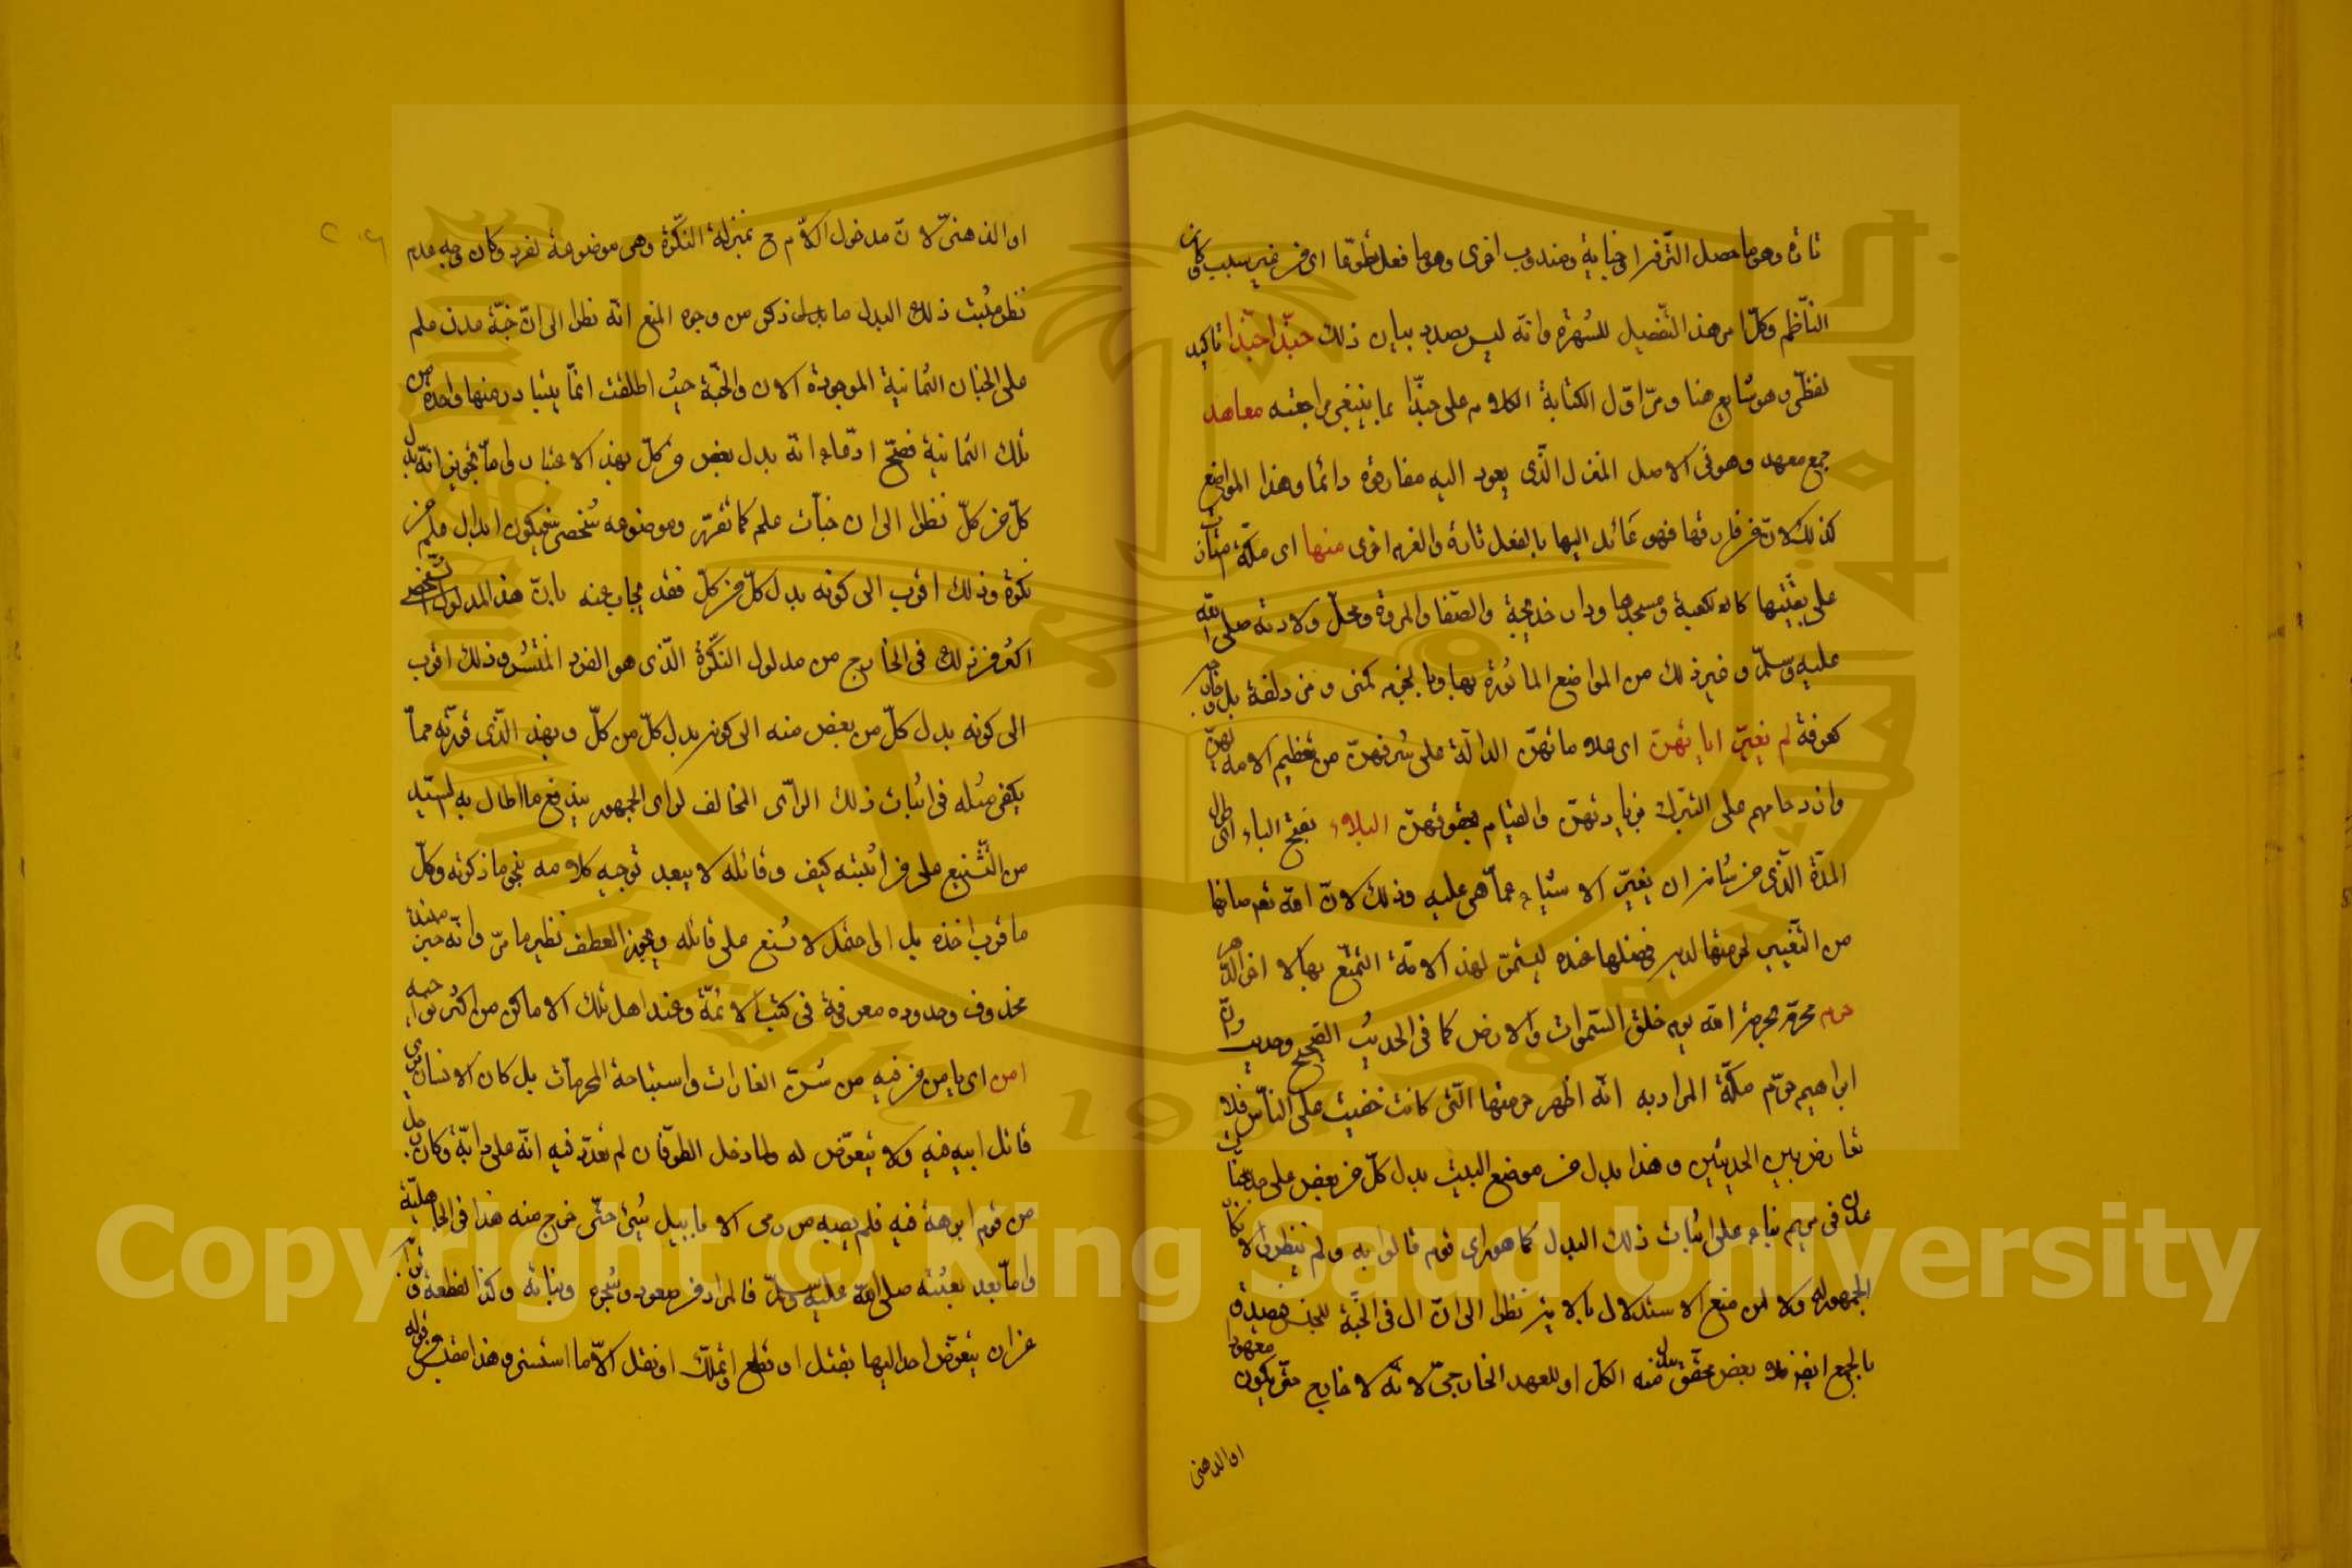 تارة وهو ما حصل التزفرا في جناية ومندوب اخرى وهو ما فعل تطوعا اى من غير سبب وكان
الناظم وكلا من هذا التفصيل للشهرة وانه ليس بصدد بيان ذلك حبذا حبذا تاكيد
لفظى وهو شايع هنا ومر اول الكتابة الكلام على حبذا بما ينبغى مراجعته معاهد
جمع معهد وهو فى الاصل المنزل الذى يعود اليه مفارقوه دائما وهذا المواضع
كذلك لان من فارقها فهو عائد اليها بالفعل تارة والغرم اخرى منها اى مكة
على بقيتها كالكعبة ومسجدها ودار خديجة والصفا والمروة ومحل ولادته صلى الله
عليه وسلم وغير ذلك من المواضع الماثورة بها وبالحرم كمنى ومزدلفة بل وخارجه
كعرفة لم يغير اياتهن اى علاماتهن الدالة على شرفهن من تعظيم الامة لهن
وازدحامهم على التبرك بزيارتهن والقيام بحقوقهن البلاء بفتح الباء اى طول
المدة الذى من شانه ان يغير الاشياء عما هى عليه وذلك لان الله تعم صانها
من التغيير لحرمتها لديه وفضلها عنده ليستمر لهذه الامة التمتع بها الا اخر الدهر
حرم محرم بحرمة الله يوم خلق السموات والارض كما فى الحديث الصحيح وحديث وان
ابراهيم حرم مكة المراد به انه اظهر حرمتها التى كانت خفيت على الناس فلا
تعارض بين الحديثين وهذا بدل من موضع البيت بدل كل من بعض على حد جنات
عدن فى مريم بناء على اثبات ذلك البدل كما هو راى قوم قالوا به ولم ينظروا لانكار
الجمهور له ولا لمن منع الاستدلال بالاية نظرا الى ان ال فى الجنة للجنس فيصدق
بالجمع ايضا فلا بعض محقق بدل منه الكل او للعهد الخارجى لانه لا خارج حتى يكون معهودا
او الذهنى
او الذهنى لان مدخول اللام ح بمنزلة النكرة وهى موضوعة لفرد وكان وجه عدم
نظر مثبت ذلك البدل ما ذكر من وجوه المنع انه نظر الى ان جنة عدن علم
على الجنان الثمانية الموجودة الان والجنة حيث اطلقت انما يتبادر منها واحدة من
تلك الثمانية فصح ادعاء انه بدل بعض وكل بهذا الاعتبار واما تجويز انه بدل
كل من كل نظرا الى ان جنات علم كما تقرر وموضوعه شخصى فيكون ابدال علم من
نكرة وذلك اقرب الى كونه بدل كل من كل فقد يجاب عنه بان هذا المدلول الشخصى
اكثر من ذلك فى الخارج من مدلول النكرة الذى هو الفرد المنتشر وذلك اقرب
الى كونه بدل كل من بعض منه الى كونه بدل كل من كل وبهذا الذى قررته مما
يكفى مثله فى اثبات ذلك الراى المخالف لراى الجمهور يندفع ما اطال به السيد
من التشنيع على من اثبته كيف وقائله لا يبعد توجيه كلامه بنحو ما ذكرته وكل
ما قرب اخذه بل او احتمل لا شنع على قائله ويجوز العطف نظير ما مر وانه حين
محذوف وحدوده معروفة فى كتب الائمة وعند اهل تلك الاماكن من اكثر نواحيه
امن اى يامن من فيه من شن الغارات واستباحة المحرمات بل كان الانسان يرى
قاتل ابيه فيه ولا يتعرض له ولما دخل الطوفان لم تعد فيه انه على دابة وكان رجل
من قوم ابرهة فيه فلم يصبه من رمى الابابيل شئ حتى خرج منه هذا فى الجاهلية
واما بعد بعثته صلى الله عليه وسلم فالمراد من صعوده وشجره ونباته وكذا لقطعة
عن ان يتعرض احد اليها بقتل او قطع او تملك او نقل الا ما استثنى وهذا مقتبس من قوله